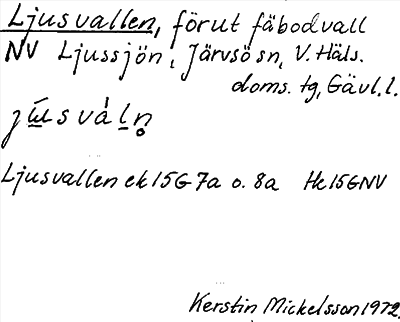 Ljusvallen, förut fäbodvall
NV Ljussjön i Järvsö sn, V. Häls.
doms. tg, Gävl. l.
Ljusvallen ek 15G 7a o. 8a Hk 15G NV
Kerstin Mickelsson 1972.